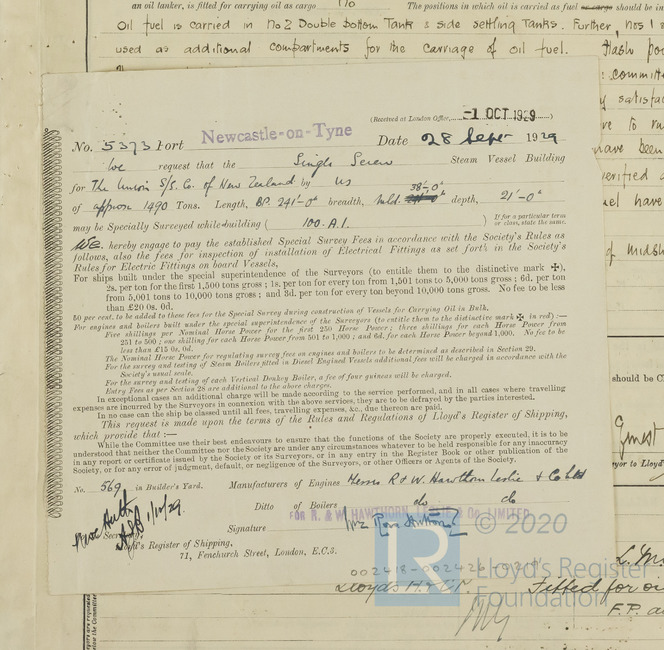 an oil tanker, is fitted for carrying oil as cargo no The positions in which oil is carried as fuel or cargo should be in
Oil fuel is carried in No 2 Double bottom Tank & side settling Tanks. Further, Nos 1
used as additional compartments for the carriage of oil fuel. flash po
committ
y satisfac
re to ru
have been
verified
uel have
of midsh
should be C
Ernest
eyor to Lloyd
(Received at London Office, -1 OCT 1929)
No. 5373 Port Newcastle-on-Tyne Date 28 Sepr 1929
We request that the Single Screw Steam Vessel Building
for The Union S/S. Co. of New Zealand by us
of approx 1490 Tons. Length, B.P. 241'-0" breadth, mld. 38'-0" depth, 21'-0"
may be Specially Surveyed while building ( 100.A.1. ) If for a particular term or class, state the same.
We. hereby engage to pay the established Special Survey Fees in accordance with the Society's Rules as
follows, also the fees for inspection of installation of Electrical Fittings as set forth in the Society's
Rules for Electric Fittings on board Vessels,
For ships built under the special superintendence of the Surveyors (to entitle them to the distinctive mark ✠),
2s. per ton for the first 1,500 tons gross; 1s. per ton for every ton from 1,501 to 5,000 tons gross; 6d. per ton
from 5,001 tons to 10,000 tons gross; and 3d. per ton for every ton beyond 10,000 tons gross. No fee to be less
than £20 0s. 0d.
50 per cent. to be added to these fees for the Special Survey during construction of Vessels for Carrying Oil in Bulk.
For engines and boilers built under the special superintendence of the Surveyors (to entitle them to the distinctive mark ✠ in red) :—
Five shillings per Nominal Horse Power for the first 250 Horse Power; three shillings for each Horse Power from
251 to 500; one shilling for each Horse Power from 501 to 1,000; and 6d. for each Horse Power beyond 1,000. No fee to be
less than £15 0s. 0d.
The Nominal Horse Power for regulating survey fees on engines and boilers to be determined as described in Section 29.
For the survey and testing of Steam Boilers fitted in Diesel Engined Vessels additional fees will be charged in accordance with the
Society's usual scale.
For the survey and testing of each Vertical Donkey Boiler, a fee of four guineas will be charged.
Entry Fees as per Section 28 are additional to the above charges.
In exceptional cases an additional charge will be made according to the service performed, and in all cases where travelling
expenses are incurred by the Surveyors in connexion with the above services, they are to be defrayed by the parties interested.
In no case can the ship be classed until all fees, travelling expenses, &c., due thereon are paid.
This request is made upon the terms of the Rules and Regulations of Lloyd's Register of Shipping,
which provide that :—
While the Committee use their best endeavours to ensure that the functions of the Society are properly executed, it is to be
understood that neither the Committee nor the Society are under any circumstances whatever to be held responsible for any inaccuracy
in any report or certificate issued by the Society or its Surveyors, or in any entry in the Register Book or other publication of the
Society, or for any error of judgment, default, or negligence of the Surveyors, or other Officers or Agents of the Society.
No. 569 in Builder's Yard. Manufacturers of Engines Messrs R & W. Hawthorn Leslie & Co Ltd
Ditto of Boilers do do
FOR R. & W. HAWTHORN LESLIE & CO. LIMITED
1/10/29.
Signature
Secretary
Lloyd's Register of Shipping,
71, Fenchurch Street, London, E.C.3.
© 2020
Lloyd's Register
Foundation
002418-002426-0217
Fitted for oi
F.P. a